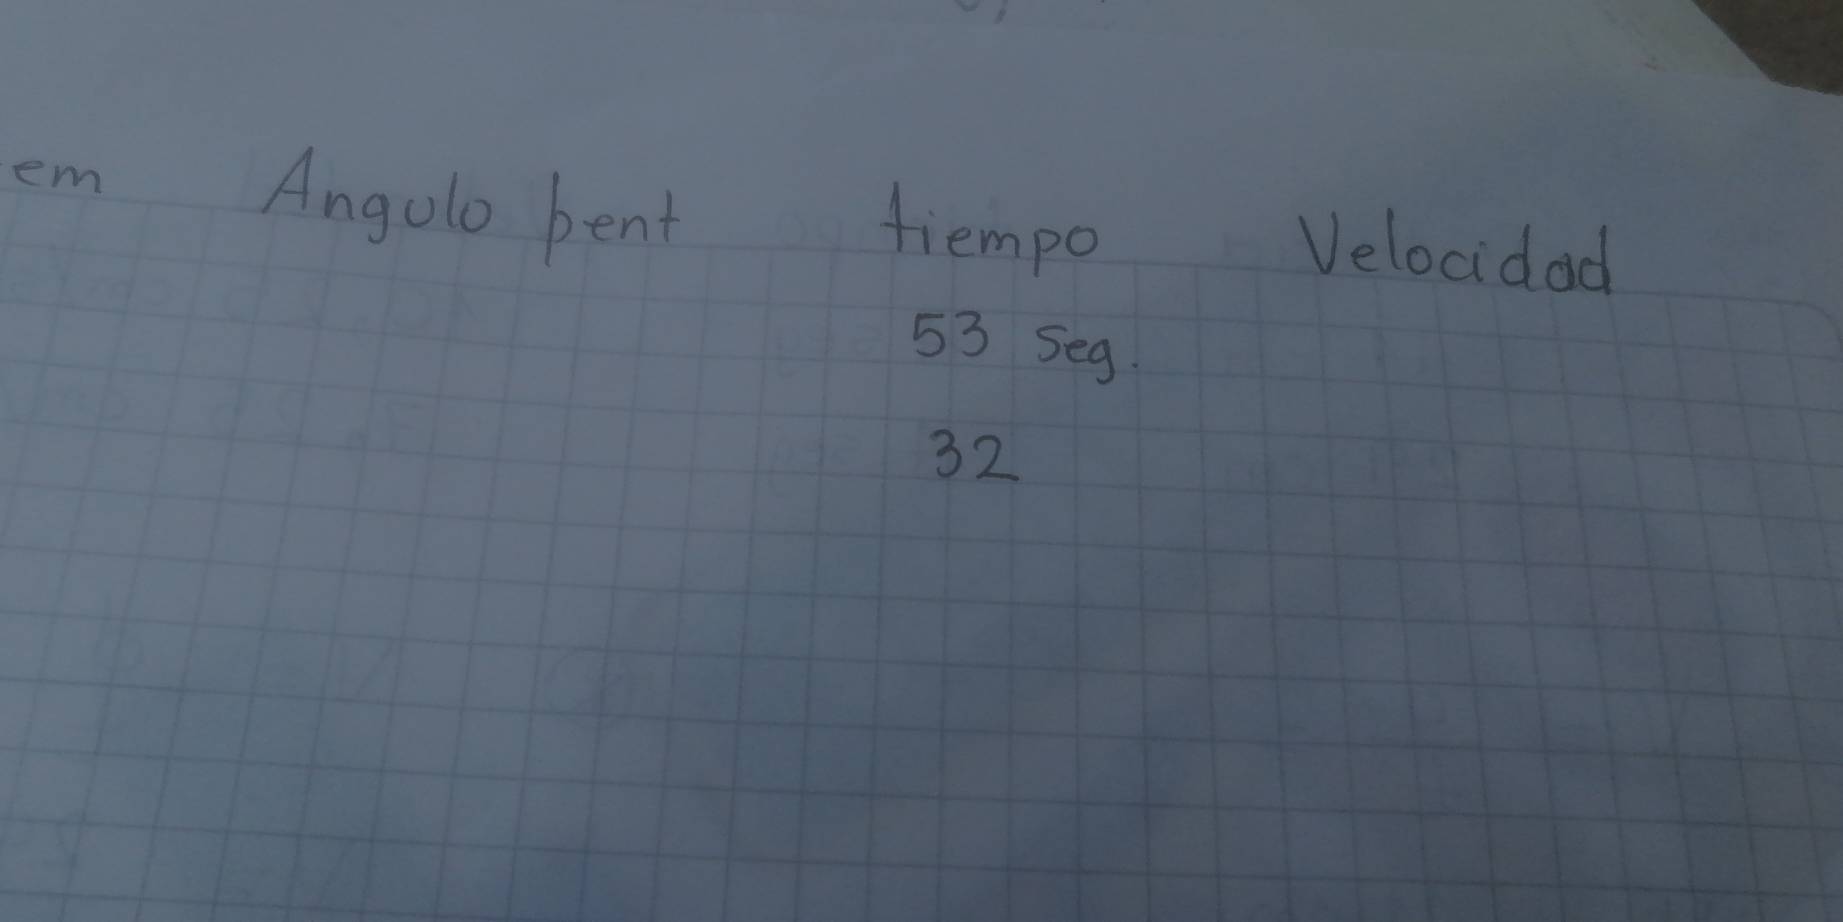 em Angulo pent tiempo Velocidad
53 seg.
32